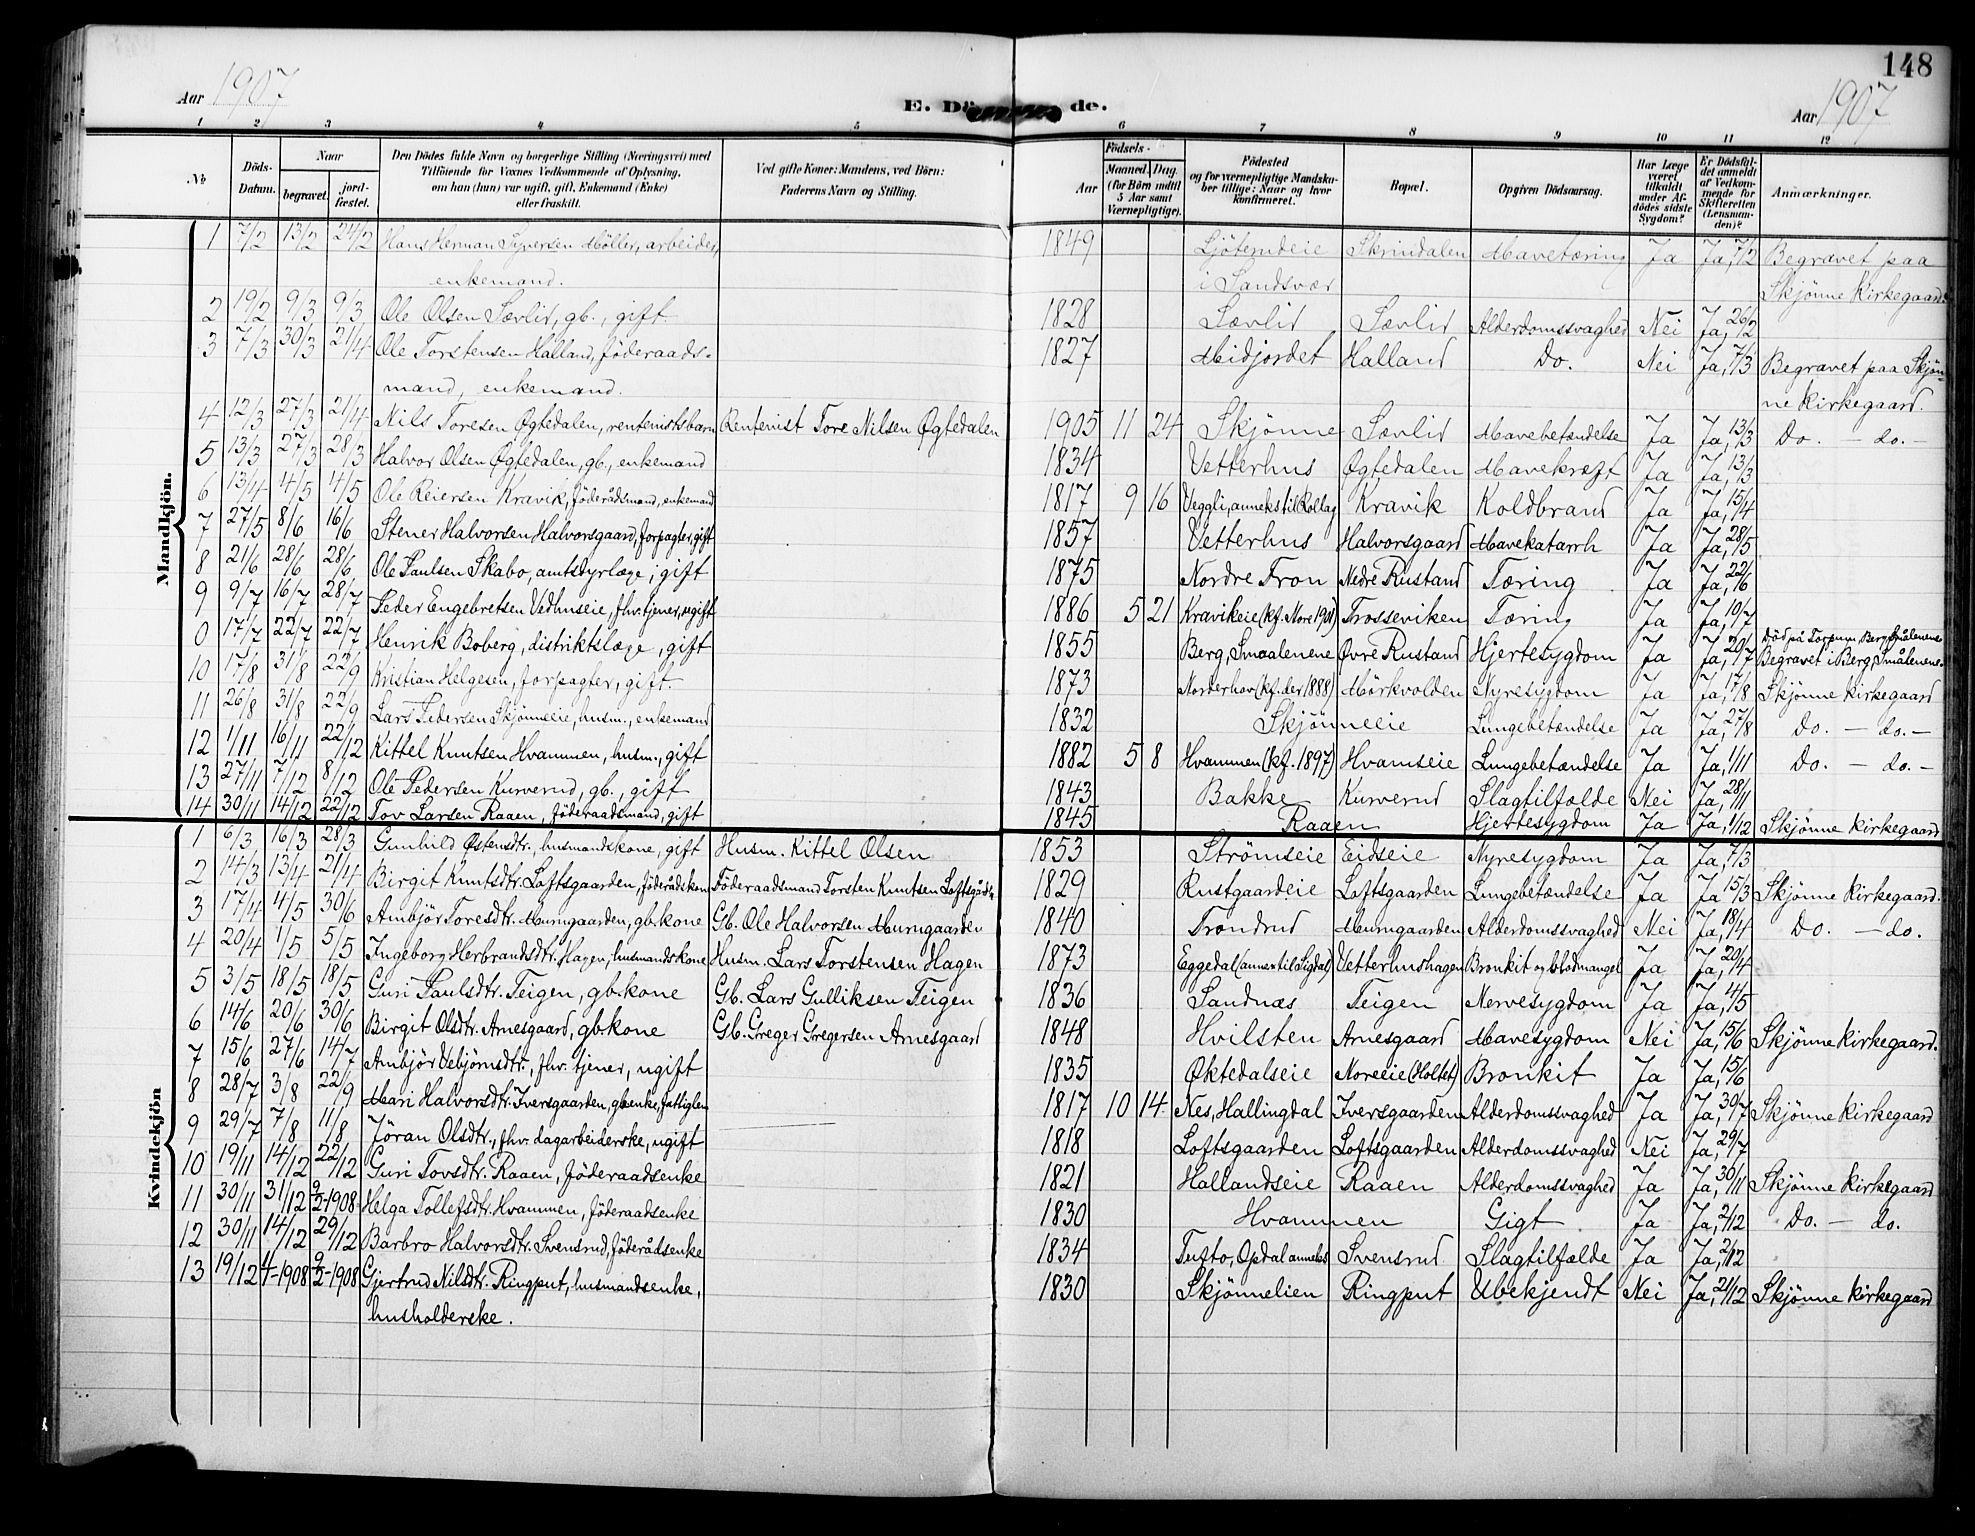 148
Aar 1907
E. Dö de.
Aar 1907
1 2 3 4 5 6 7 8 9 10 11 12
№
Döds-Datum.
Naar
begravet.
jord-fæstet.
Den Dödes fulde Navn og borgerlige Stilling (Næringsvei) med
Tilföiende for Voxnes Vedkommende af Oplysning,
om han (hun) var ugift, gift, Enkemand (Enke)
eller fraskilt.
Ved gifte Koner: Mandens, ved Börn:
Faderens Navn og Stilling.
Födsels-
Aar
Maaned. Dag.
(for Börn indtil
5 Aar samt
Værnepligtige).
Födested
og for værnepligtige Mandska-
ber tillige: Naar og hvor
konfirmeret.
Bopæl.
Opgiven Dödsaarsag.
Har Læge
været
tilkaldt
under Af-
dödes sidste
Sygdom?
Er Dödsfal-
det anmeldt
af Vedkom-
mende for
Skifteretten
(Lensman-
den)?
Anmærkninger.
Mandkjön.
1 7/2 13/2 24/2 Hans Herman Syversen Möller, arbeider, 1849 i Sandsvær Skrindalen Mavetæring Ja Ja, 7/2 Begravet paa
enkemand. Skjønne Kirkegaard.
2 19/2 9/3 9/3 Ole Olsen Sævlid, gb., gift. 1828 Sævlid Sævlid Alderdomssvaghed Nei Ja, 26/2
3 7/3 30/3 21/4 Ole Torstensen Halland, föderaads- 1827 Midjordet Halland Do. Nei Ja, 7/3 Begravet paa Skjøn-
mand, enkemand. ne Kirkegaard.
4 12/3 27/3 21/4 Nils Toresen Øgtedalen, rentenistsbarn Rentenist Tore Nilsen Øgtedalen 1905 11 24 Skjønne Sævlid Mavebetændelse Ja Ja, 13/3 Do. - do. -
5 13/3 27/3 28/3 Halvor Olsen Øgtedalen, gb., enkemand 1834 Vetterhus Øgtedalen Mavekræft Ja Ja, 13/3
6 13/4 4/5 4/5 Ole Reiersen Kravik, föderådsmand, enkemand 1817 9 16 Veggli, anneks til Rollag Kravik Koldbrand Ja Ja, 15/4
7 27/5 8/6 16/6 Stener Halvorsen Halvorsgaard, forpagter, gift 1857 Vetterhus Halvorsgaard Mavekatarrh Ja Ja, 28/5
8 21/6 28/6 28/6 Ole Paulsen Skabo, amtsdyrlæge, gift 1875 Nordre Fron Nedre Rustand Tæring Ja Ja, 22/6
9 9/7 16/7 28/7 Peder Engebretsen Vedhuseie, fhv. tjener, ugift 1886 5 21 Kravikeie (kf. Nore 1901) Trosseviken Tæring Ja Ja, 10/7
0 17/7 22/7 22/7 Henrik Boberg, distriktslæge, gift 1855 Berg, Smaalenene Øvre Rustand Hjertesygdom Ja Ja, 20/7 Död på Torpum, Berg, Smålenene
Begravet i Berg, Smålenene.
10 17/8 31/8 22/9 Kristian Helgesen, forpagter, gift. 1873 Norderhov (kf. der 1888) Mörkvolden Nyresygdom Ja Ja, 17/8 Skjønne Kirkegaard
11 26/8 31/8 22/9 Lars Pedersen Skjønneeie, husm., enkemand 1832 Skjønneeie Lungebetændelse Ja Ja, 27/8 Do. - do. -
12 1/11 16/11 22/12 Kittel Knutsen Hvammen, husm., gift 1882 5 8 Hvammen (kf. 1897) Hvamseie Lungebetændelse Ja Ja, 1/11 Do. - do. -
13 27/11 7/12 8/12 Ole Pedersen Kurverud, gb., gift 1843 Bakke Kurverud Slagtilfælde Nei Ja, 28/11
14 30/11 14/12 22/12 Tov Larsen Raaen, föderaadsmand, gift 1845 Raaen Hjertesygdom Ja Ja, 1/12 Skjønne Kirkegaard
Kvindekjön
1 6/3 16/3 28/3 Gunhild Østensdtr., husmandskone, gift Husm. Kittel Olsen 1853 Strömseie Eidseie Nyresygdom Ja Ja, 7/3
2 14/3 13/4 21/4 Birgit Knutsdtr. Loftsgaarden, föderådskone Föderaadsmand Torsten Knutsen Loftsgård. 1829 Rustgaardeie Loftsgaarden Lungebetændelse Ja Ja 15/3 Skjønne Kirkegaard.
3 17/4 4/5 30/6 Ambjör Toresdtr. Murngaarden, gb.kone Gb. Ole Halvorsen Murngaarden 1840 Trondrud Murngaarden Alderdomssvaghed Nei Ja, 18/4 Do. - do.
4 20/4 1/5 5/5 Ingeborg Herbrandsdtr. Hagen, husmandskone Husm. Lars Torstensen Hagen 1873 Eggedal (annex til Sigdal) Vetterhushagen Bronkit og blodmangel Ja Ja, 20/4
5 3/5 18/5 18/5 Guri Paulsdtr. Teigen, gb.kone Gb. Lars Gulliksen Teigen 1836 Sandnæs Teigen Nervesygdom Ja Ja, 4/5
6 14/6 20/6 30/6 Birgit Olsdtr. Arnesgaard, gb.kone Gb. Greger Gregersen Arnesgaard 1848 Hvilsten Arnesgaard Mavesygdom Nei Ja, 15/6 Skjønne Kirkegaard.
7 15/6 27/6 14/7 Ambjör Vebjörnsdtr., fhv. tjener, ugift 1835 Øktedalseie Noreeie (Holtet) Bronkit Ja Ja, 15/6
8 28/7 3/8 22/9 Mari Halvorsdtr. Iversgaarden, gb.enke, fattiglem 1817 10 14 Nes, Hallingdal Iversgaarden Alderdomssvaghed Ja Ja, 30/7 Skjønne Kirkegaard
9 29/7 7/8 11/8 Jöran Olsdtr., fhv. dagarbeiderske, ugift 1818 Loftsgaarden Loftsgaarden Alderdomssvaghed Nei Ja, 29/7
10 19/11 14/12 22/12 Guri Tovsdtr. Raaen, föderaadsenke 1821 Hallandseie Raaen Alderdomssvaghed Ja Ja, 30/11 Skjønne Kirkegaard
11 30/11 31/12 9/2-1908 Helga Tollefsdtr. Hvammen, föderaadsenke 1830 Hvammen Gigt Ja Ja, 2/12 Do. - do.
12 30/11 14/12 29/12 Barbro Halvorsdtr. Svensrud, föderådsenke 1834 Tufto, Opdal anneks Svensrud Slagtilfælde Ja Ja, 2/12
13 19/12 4/1-1908 9/2-1908 Gjertrud Nilsdtr. Ringput, husmandsenke, 1830 Skjønnelien Ringput Ubekjendt Nei Ja, 21/12 Skjønne Kirkegaard
husholderske.